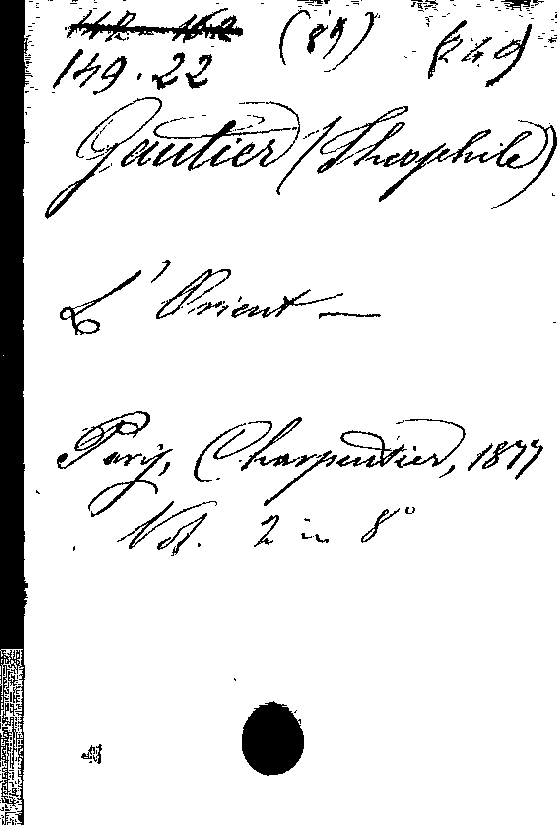 149.22 (89)
Gautier (Théophile)
L'Orient —
Paris, Charpentier, 1877
Vol. 2 in 8°